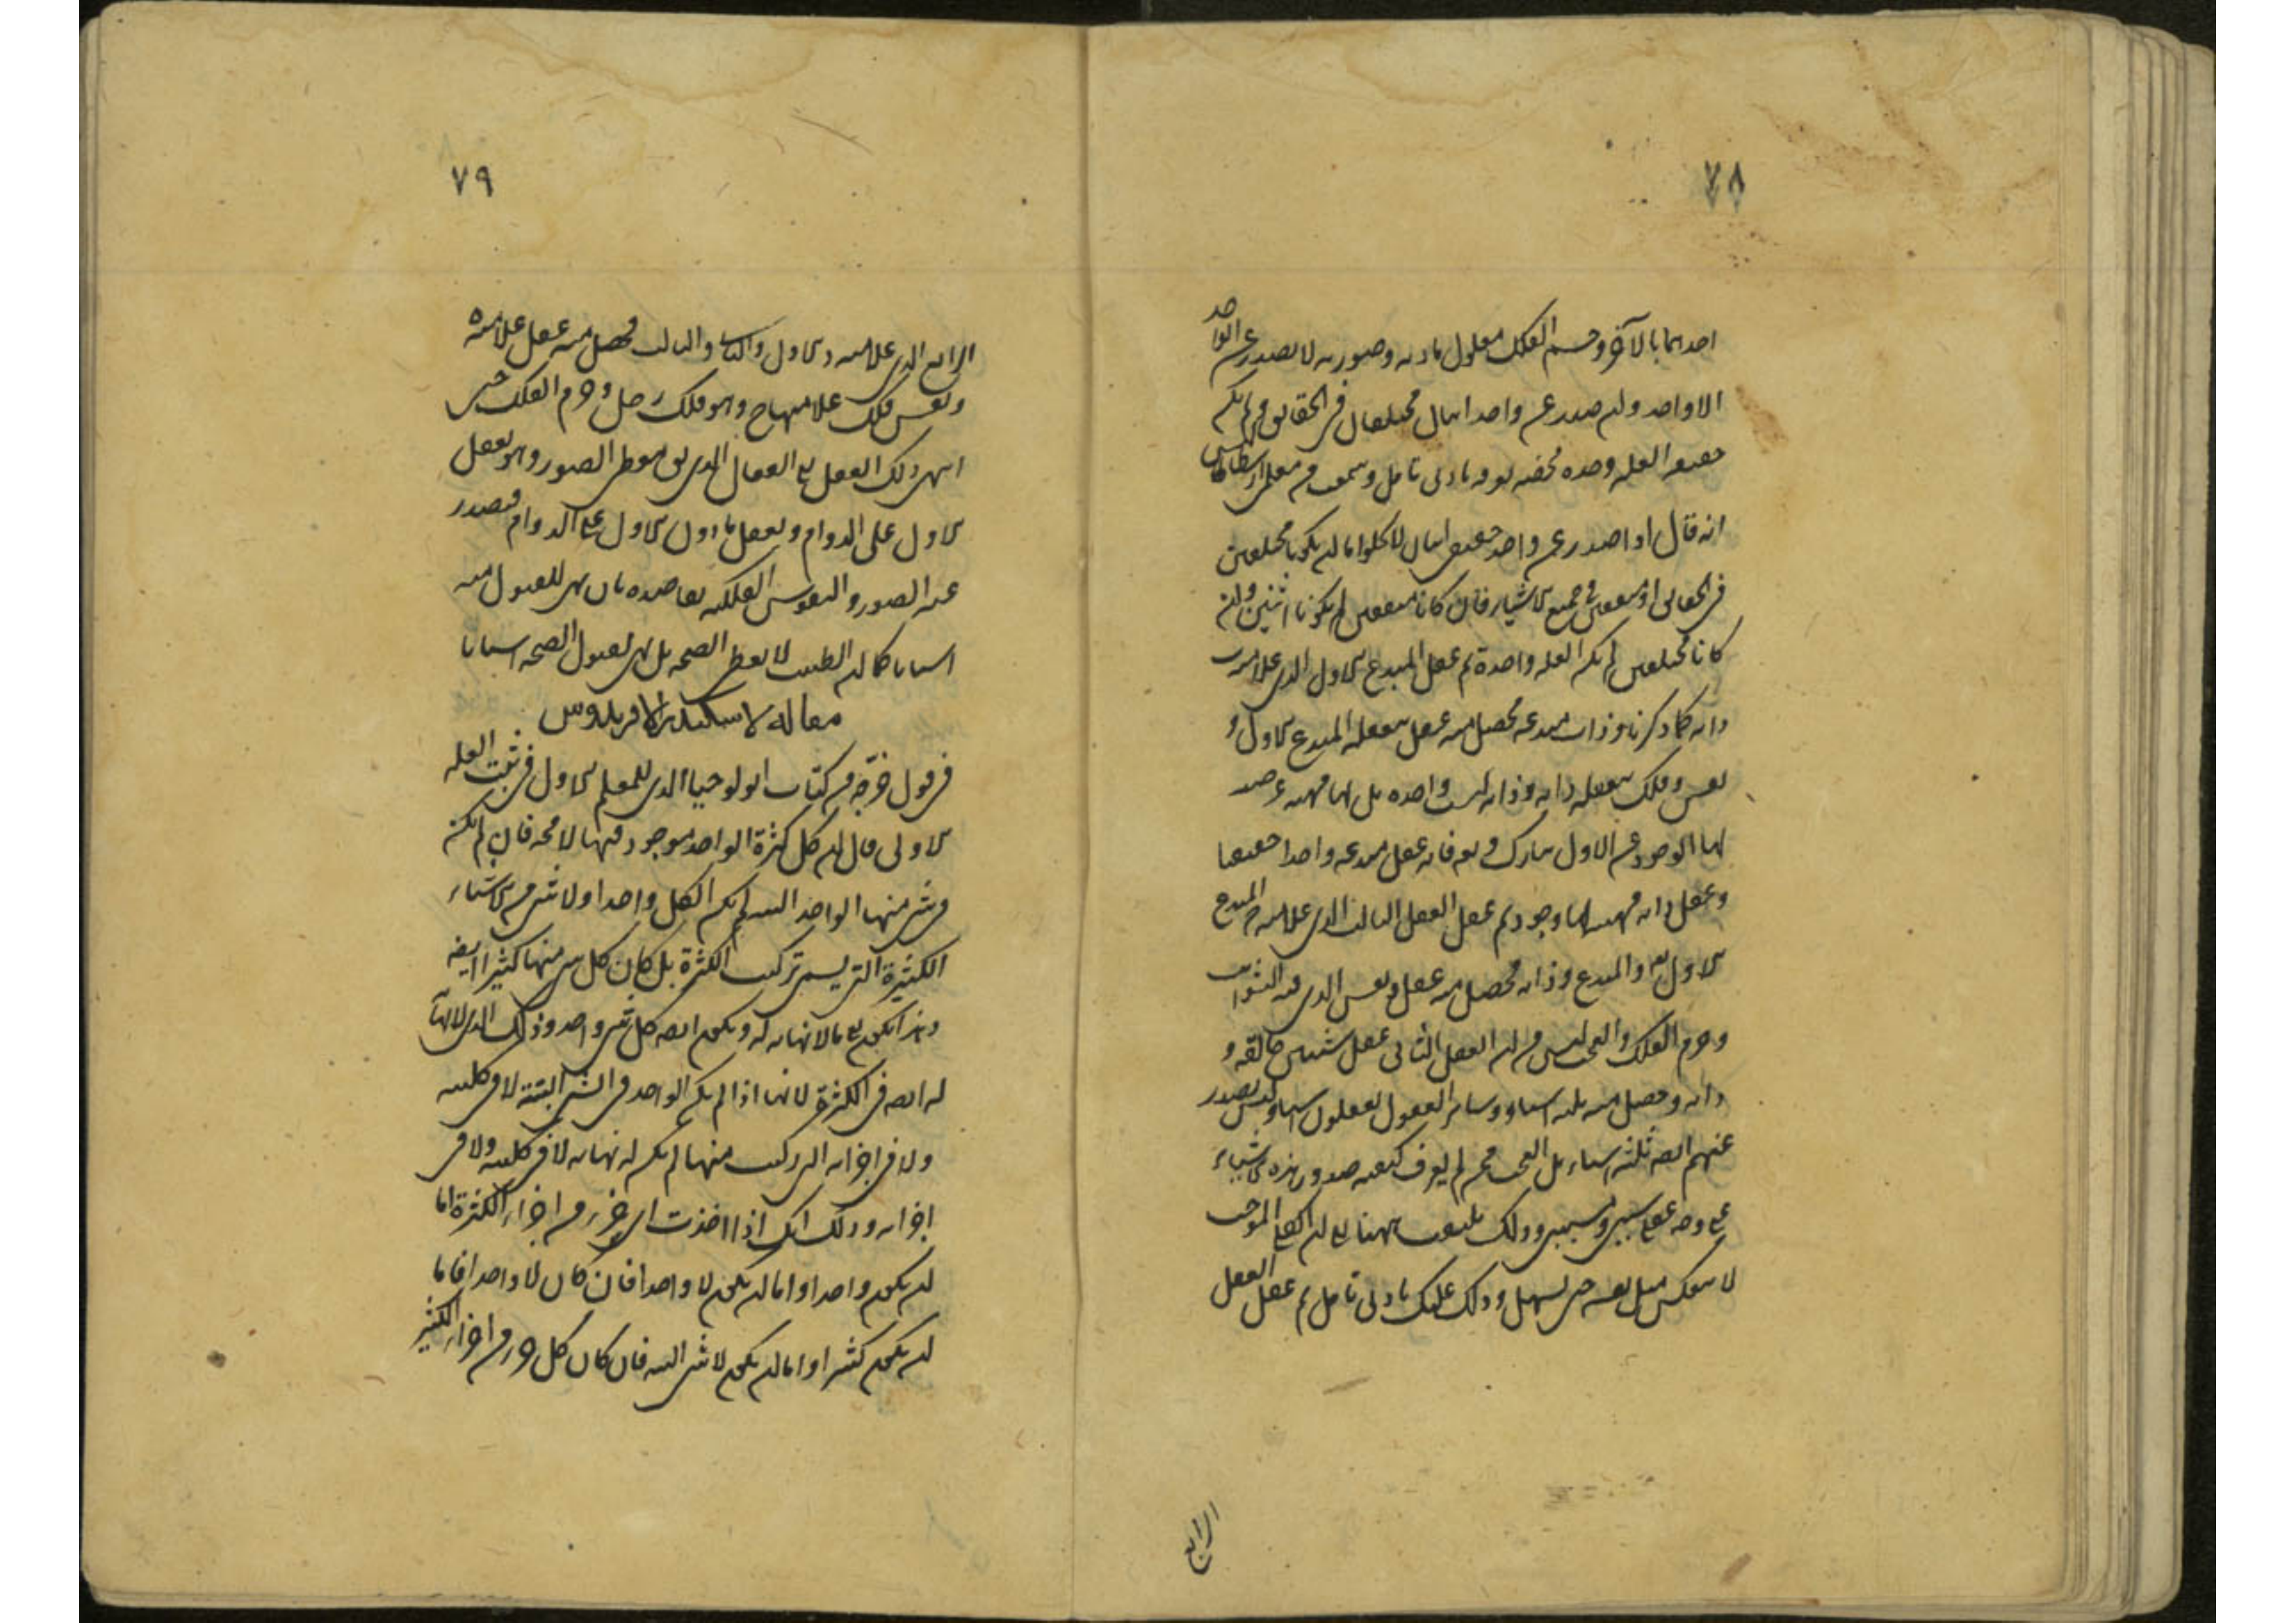 ٧٨
احدهما بالآخر وجسم الفلك معلول مادته وصورته لا يصدر عن الواحد
الا واحد ولو صدر عن واحد اثنان مختلفان في الحقائق لم يكن
حقيقة العلة وحدة محضة بأدنى تأمل وسمعت من معلمي ارسطاطاليس
انه قال اذا صدر عن واحد حقيقي اثنان لا يخلو اما ان يكونا مختلفين
في الحقائق او متفقين في جميع الاشياء فان كانا متفقين لم يكونا اثنين وان
كانا مختلفين لم يكن العلة واحدة ثم عقل المبدع الاول الذي علا مرتبة
ذاته كما ذكرنا وذات مبدعه يحصل منه عقل بتعقله المبدع الاول و
نفس وفلك بتعقله ذاته وذاته ليست واحدة بل لها مهية عرض
لها الوجود عن الاول تبارك وتعه فانه عقل مبدعه واحدا حقيقيا
وعقل ذاته مهية لها وجود ثم عقل العقل الثالث الذي علا مرتبة المبدع
الاول تعه والمبدع وذاته يحصل منه عقل ونفس الذي فيه الثوابت
وجرم الفلك والعجب ليس من ان العقل الثاني عقل شيئين خالقه و
ذاته وحصل منه ثلثة اشياء وسائر العقول تعقلون اشياء وليس يصدر
عنهم ايضه ثلثة اشياء بل العجب ممن لم يعرف كيفية صدور هذه الاشياء
على وجه عقلي سببي ومسببي وذلك يلتفت ههنا الى ان العلي الموجب
لا ينعكس مثل نفسه حتى يسهل ذلك عليك بأدنى تأمل ثم عقل العقل
الرابع
٧٩
الرابع الذي علا مرتبة الاول والثاني والثالث فحصل منه عقل علا مرتبة
ونفس فلك علا منهاج وهو فلك زحل وجرم الفلك حتى
انتهى ذلك العقل الى الفعال الذي هو معطي الصور وهو يعقل
الاول على الدوام ويعقل ما دون الاول على الدوام فتصدر
عنه الصور والنفوس الفلكية تعاضده بان تهيئ للقبول منه
اسبابا كما ان الطبيب لا يعطي الصحة بل يهيئ لقبول الصحة اسبابا
مقالة لاسكندر الافريدوسي
في قول خرجه من كتاب اثولوجيا الذي للمعلم الاول في تثبت العلة
الاولى قال ان كل كثرة الواحد موجود فيها لا محة فان لم يكن
في شيء منها الواحد البتة لم يكن الكل واحدا ولا شيء من الاشياء
الكثيرة التي يسم تركبت الكثرة بل كان كل شيء منها كثيرا ايضه
وهذا يكون الى ما لا نهاية له ويكون ايضه كل شيء واحد وذلك الذي لا نهاية
له ايضه في الكثرة لانها اذا لم يكن الواحد في الشيء البتة لا في كليته
ولا في اجزائه التي ركبت منها لم يكن له نهاية لا في كليته ولا في
اجزائه وذلك انك اذا اخذت اي جزء من اجزاء الكثرة اما
ان يكون واحدا واما ان يكون لا واحدا فان كان لا واحدا فاما
ان يكون كثيرا واما ان يكون لا شيء البتة فان كان كل جزء من اجزاء الكثير